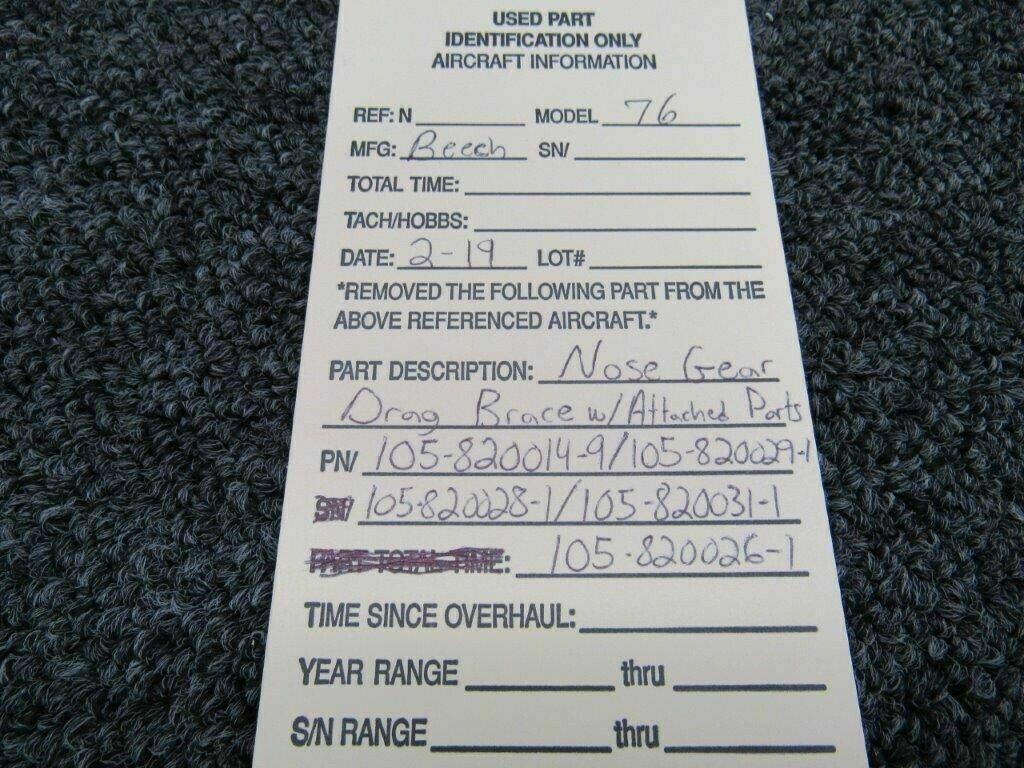 USED PART
IDENTIFICATION ONLY
AIRCRAFT INFORMATION
REF: N MODEL 76
MFG: Beech SN/
TOTAL TIME:
TACH/HOBBS:
DATE: 2-19 LOT#
*REMOVED THE FOLLOWING PART FROM THE
ABOVE REFERENCED AIRCRAFT.*
PART DESCRIPTION: Nose Gear
Drag Brace w/Attached Parts
PN/ 105-820014-9/105-820029-1
SN/ 105-820028-1/105-820031-1
PART TOTAL TIME: 105-820026-1
TIME SINCE OVERHAUL:
YEAR RANGE thru
S/N RANGE thru